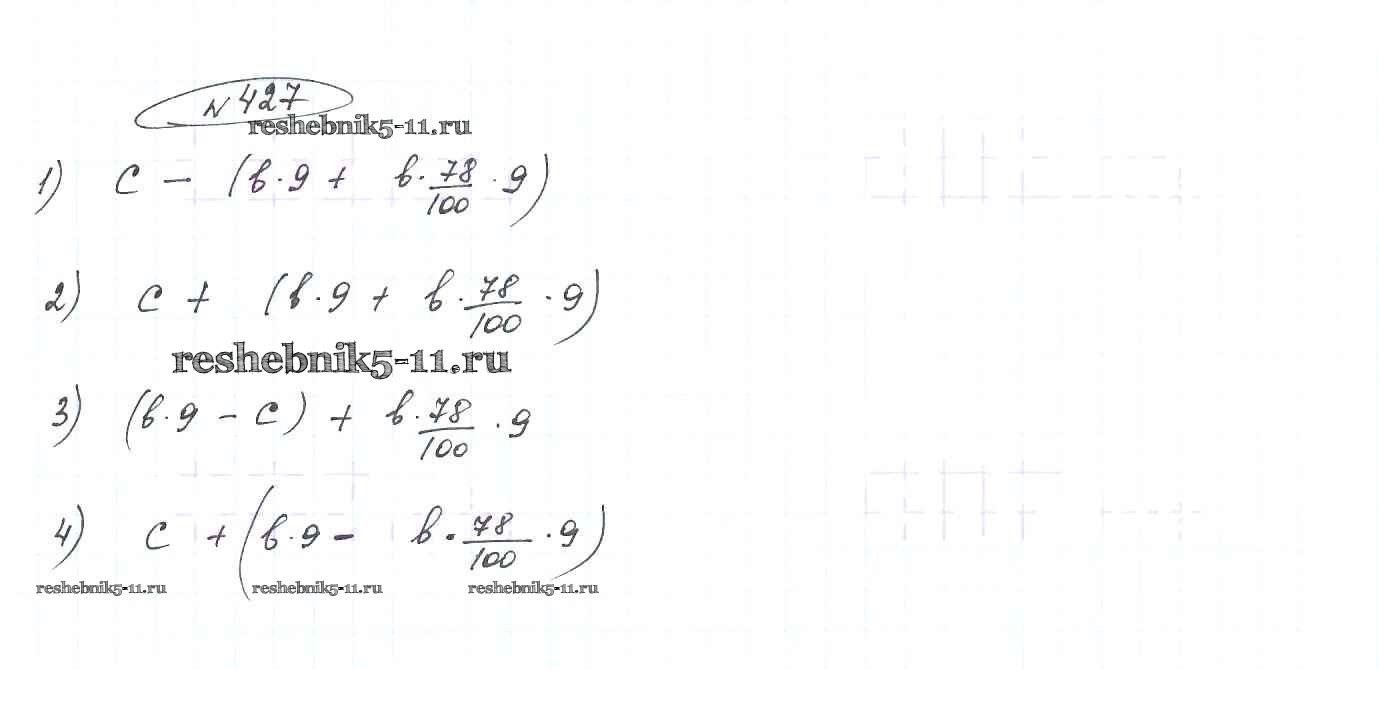 № 427
reshebnik5-11.ru
1) c - (в·9 + в·78/100·9)
2) c + (в·9 + в·78/100·9)
reshebnik5-11.ru
3) (в·9 - c) + в·78/100·9
4) c + (в·9 - в·78/100·9)
reshebnik5-11.ru reshebnik5-11.ru reshebnik5-11.ru